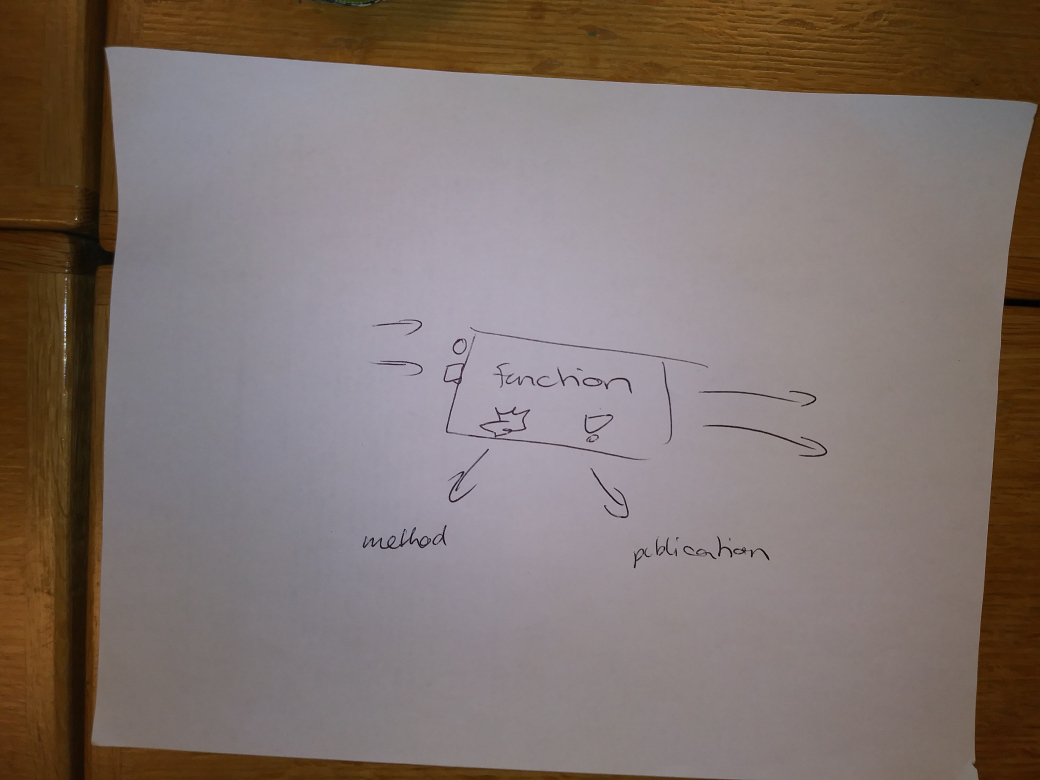 function
method
publication